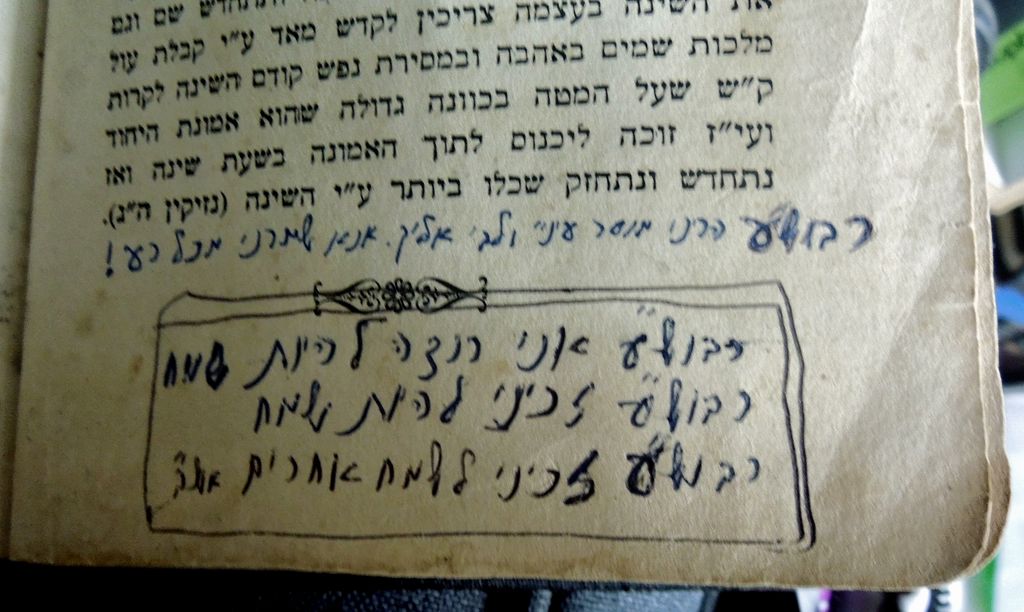 את השינה בעצמה צריכין לקדש מאד ע״י קבלת עול
מלכות שמים באהבה ובמסירת נפש קודם השינה לקרות
ק״ש שעל המטה בכוונה גדולה שהוא אמונת היחוד
ועי״ז זוכה ליכנוס לתוך האמונה בשעת שינה ואז
נתחדש ונתחזק שכלו ביותר ע״י השינה (נזיקין ה״נ).
רבוש״ע הרני מוסר עיני ולבי אליך. אנא שמרני מכל רע!
רבוש״ע אני רוצה להיות שמח
רבוש״ע זכיני להיות שמח
רבוש״ע זכיני לשמח אחרים